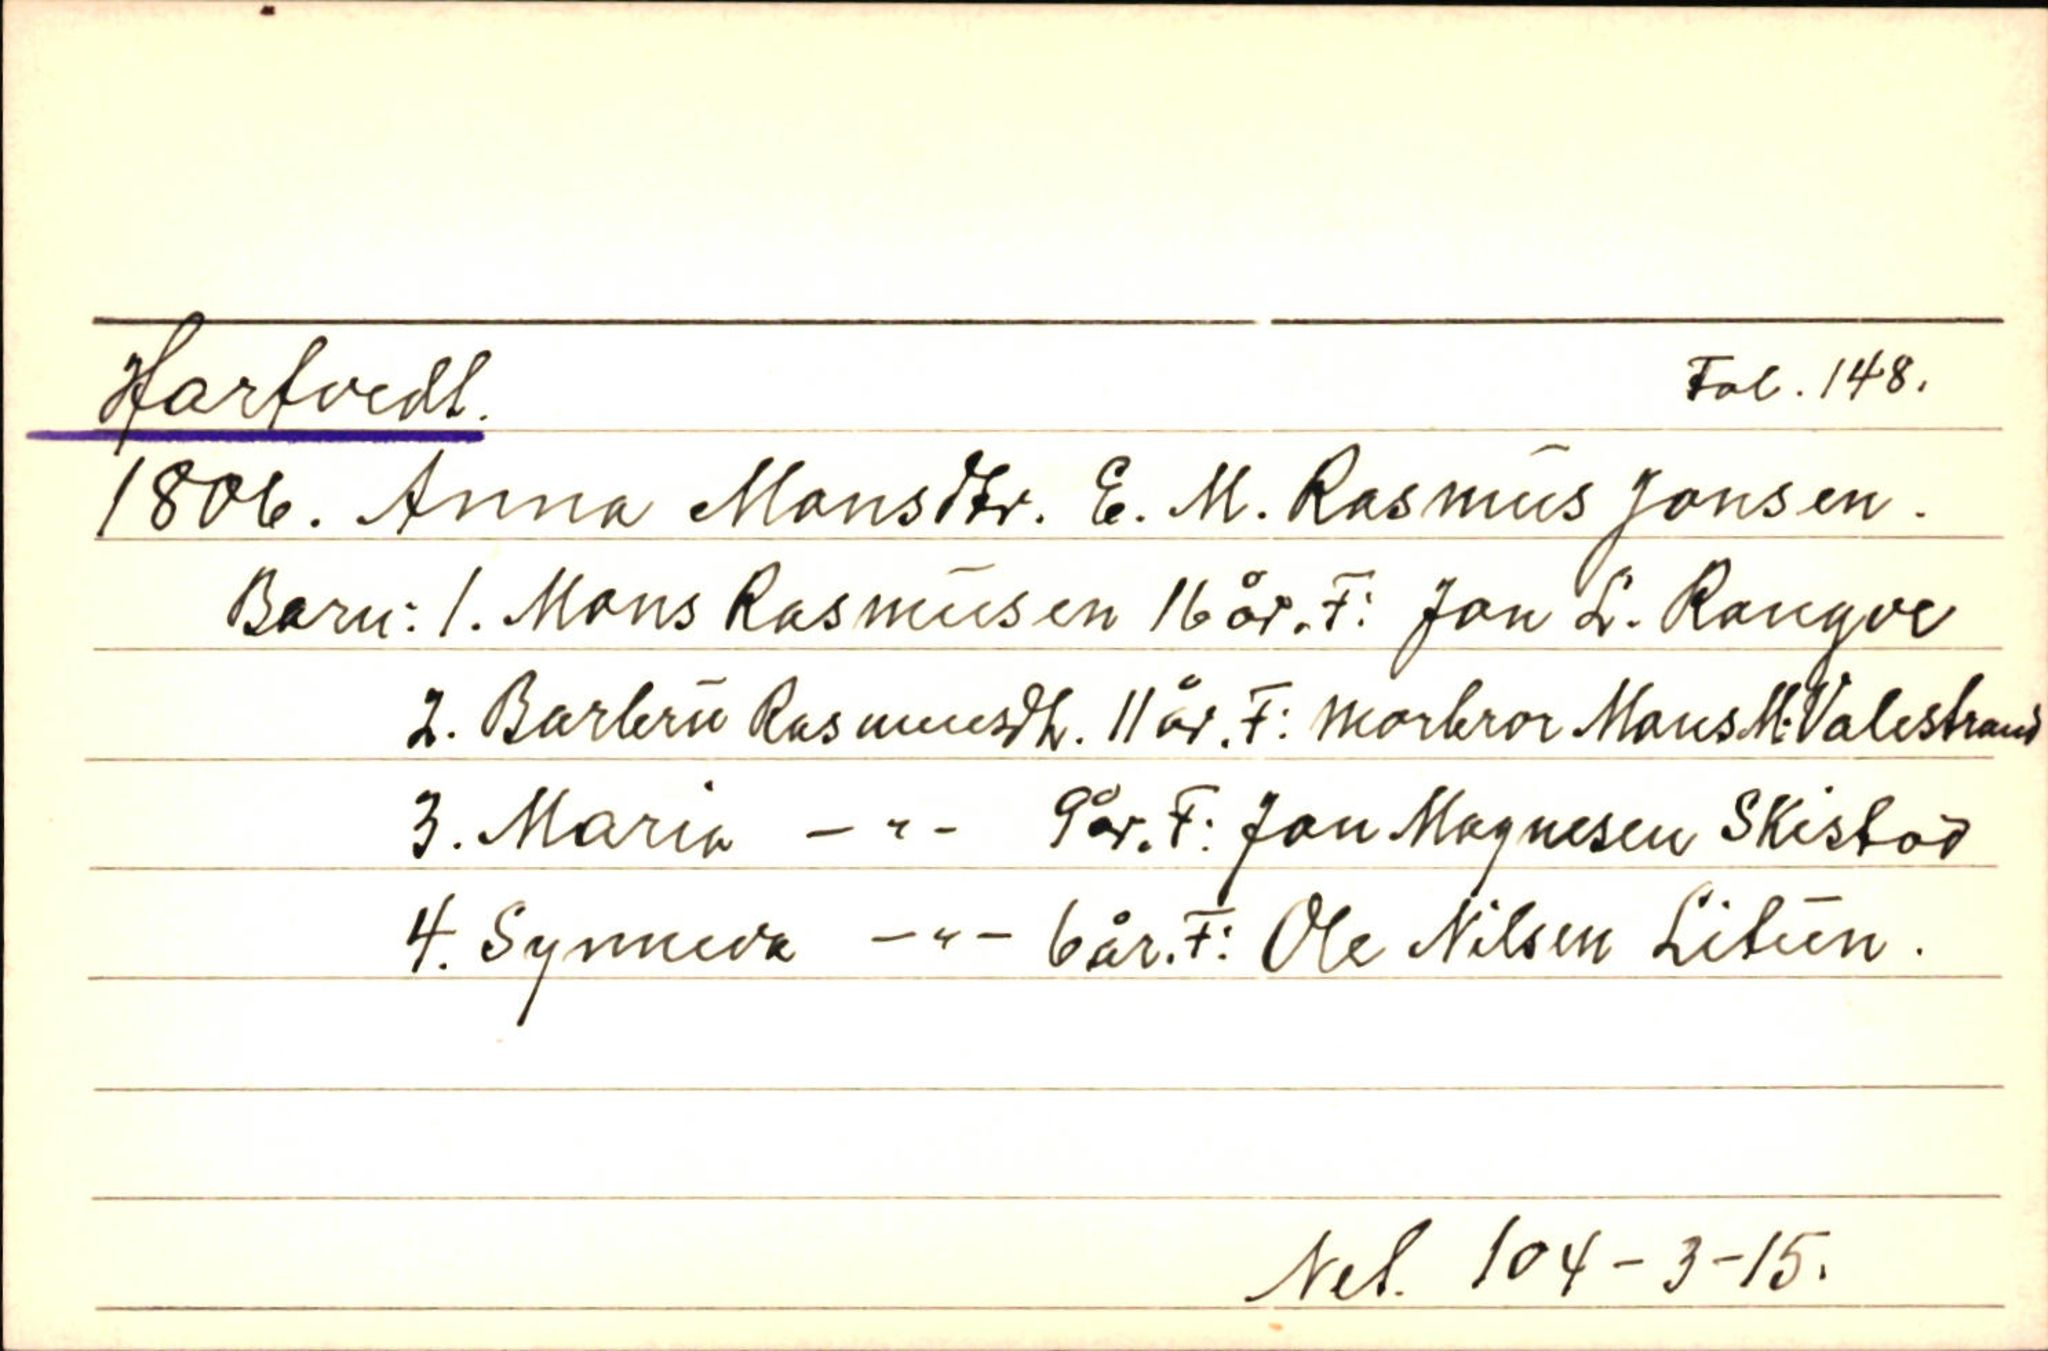 Hartvedt.
Fol. 148.
1806. Anna Monsdtr. E. M. Rasmus Jonsen.
Barn: 1. Mons Rasmusen 16 år. F: Jon L. Rongve
2. Barbru Rasmusdtr. 11 år. F: morbror Mons M. Valestrand
3. Maria —"— 9 år. F: Jon Magnesen Skistad
4. Synneva —"— 6 år. F: Ole Nilsen Litun.
Net. 104-3-15.